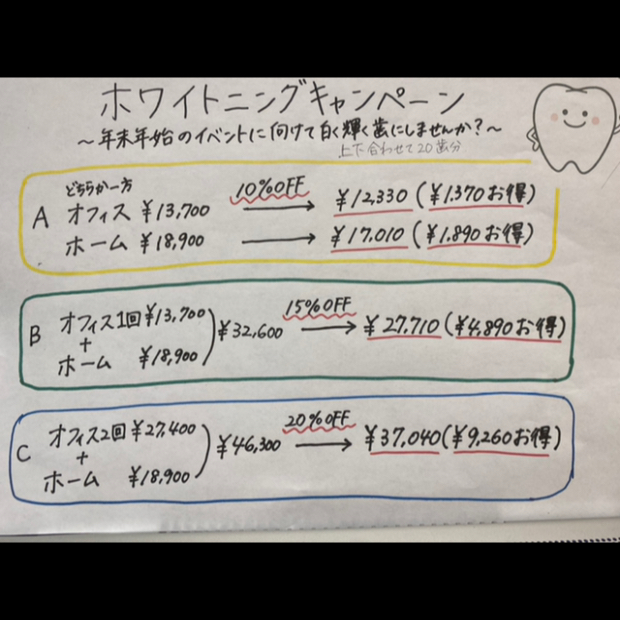 ホワイトニングキャンペーン
~年末年始のイベントに向けて白く輝く歯にしませんか?~
上下合わせて20歯分
どちらか一方
10%OFF
A オフィス ¥13,700 → ¥12,330(¥1,370お得)
ホーム ¥18,900 → ¥17,010(¥1,890お得)
15%OFF
B オフィス1回¥13,700
+
ホーム ¥18,900
¥32,600 → ¥27,710(¥4,890お得)
20%OFF
C オフィス2回¥27,400
+
ホーム ¥18,900
¥46,300 → ¥37,040(¥9,260お得)